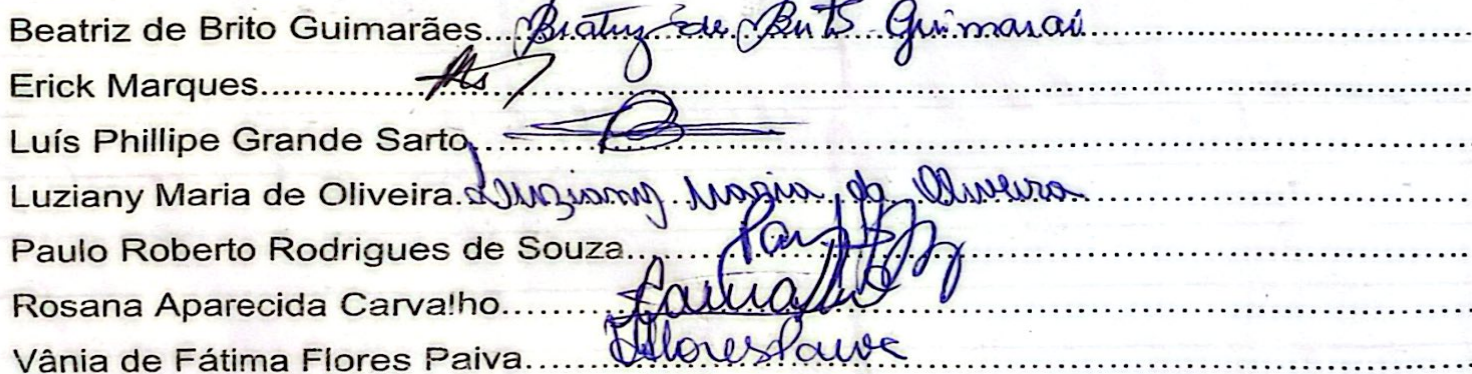 Beatriz de Brito Guimarães... Beatriz de Brito Guimarães
Erick Marques
Luís Phillipe Grande Sarto
Luziany Maria de Oliveira. Luziany Maria de Oliveira
Paulo Roberto Rodrigues de Souza
Rosana Aparecida Carvalho... Carvalho
Vânia de Fátima Flores Paiva... Flores Paiva